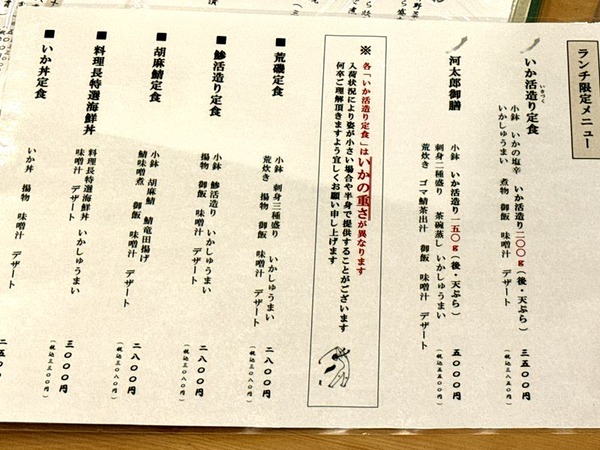 ランチ限定メニュー
いか活造り定食
いかつく
小鉢 いかの塩辛 いか活造り二〇〇g(後・天ぷら)
いかしゅうまい 煮物 御飯 味噌汁 デザート
三五〇〇円
(税込三八五〇円)
河太郎御膳
小鉢 いか活造り一五〇g(後・天ぷら)
刺身二種盛り 茶碗蒸し いかしゅうまい
荒炊き ゴマ鯖茶出汁 御飯 味噌汁 デザート
五〇〇〇円
(税込五五〇〇円)
※ 各「いか活造り定食」はいかの重さが異なります
入荷状況により姿が小さい場合や半身で提供することがございます
何卒ご理解頂きますよう宜しくお願い申し上げます
■ 荒磯定食
小鉢 刺身三種盛り いかしゅうまい
荒炊き 御飯 味噌汁 デザート
二八〇〇円
(税込三〇八〇円)
■ 鯵活造り定食
小鉢 鯵活造り いかしゅうまい
揚物 御飯 味噌汁 デザート
二八〇〇円
(税込三〇八〇円)
■ 胡麻鯖定食
小鉢 胡麻鯖 鯖竜田揚げ
鯖味噌煮 御飯 味噌汁 デザート
二八〇〇円
(税込三〇八〇円)
■ 料理長特選海鮮丼
料理長特選海鮮丼 いかしゅうまい
味噌汁 デザート
三〇〇〇円
(税込三三〇〇円)
■ いか丼定食
いか丼 揚物 味噌汁 デザート